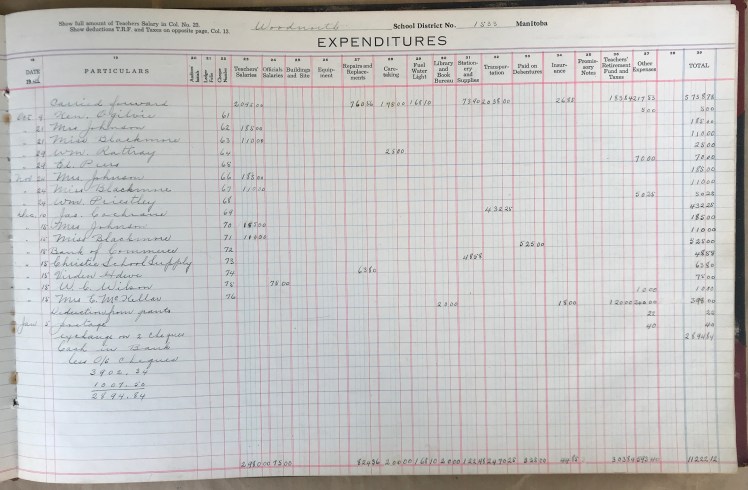 Show full amount of Teachers Salary in Col. No. 23.
Show deductions T.R.F. and Taxes on opposite page, Col. 12.
Woodnorth School District No. 1853 Manitoba
EXPENDITURES
DATE PARTICULARS Teachers' Salaries Officials Salaries Buildings and Site Equipment Repairs and Replacements Caretaking Fuel Water Light Library and Book Bureau Stationery and Supplies Transportation Paid on Debentures Insurance Promissory Notes Teachers' Retirement Fund and Taxes Other Expenses TOTAL
Carried forward 2045.00 178.00 168.10 2038.00 26.85
4 Ken. Ogilvie 61 5.00 5.00
" 21 Mrs Johnson 62 185.00 185.00
" 21 Miss Blackmore 63 110.00 110.00
" 29 Wm. Rattray 64 25.00 25.00
" 29 70.00 70.00
Nov 24 Mrs Johnson 66 185.00 185.00
" 24 Miss Blackmore 67 110.00 110.00
" 24 Wm Priestley 68 50.25 50.25
Dec 14 Jas. Cochrane 69 432.25 432.25
" 15 Mrs. Johnson 70 185.00 185.00
" 15 Miss Blackmore 71 110.00 110.00
" 15 Bank of Commerce 72 525.00 525.00
" 15 Christie School Supply 73 48.58 48.58
" 15 Virden Hdwe 74 63.80 63.80
" 15 W. C. Wilson 75 75.00 75.00
" 15 Mrs C. McKellar 76 10.00 10.00
Deduction from grants 20.00 18.00 120.00 398.00
Jan 5 postage 22 22
exchange on 2 cheques 40 40
Cash in Bank 2894.84
less O/S cheques
3902.34
1007.50
2894.84
2980.00 75.00 824.36 200.00 168.10 20.00 2470.25 525.00 44.85 303.84